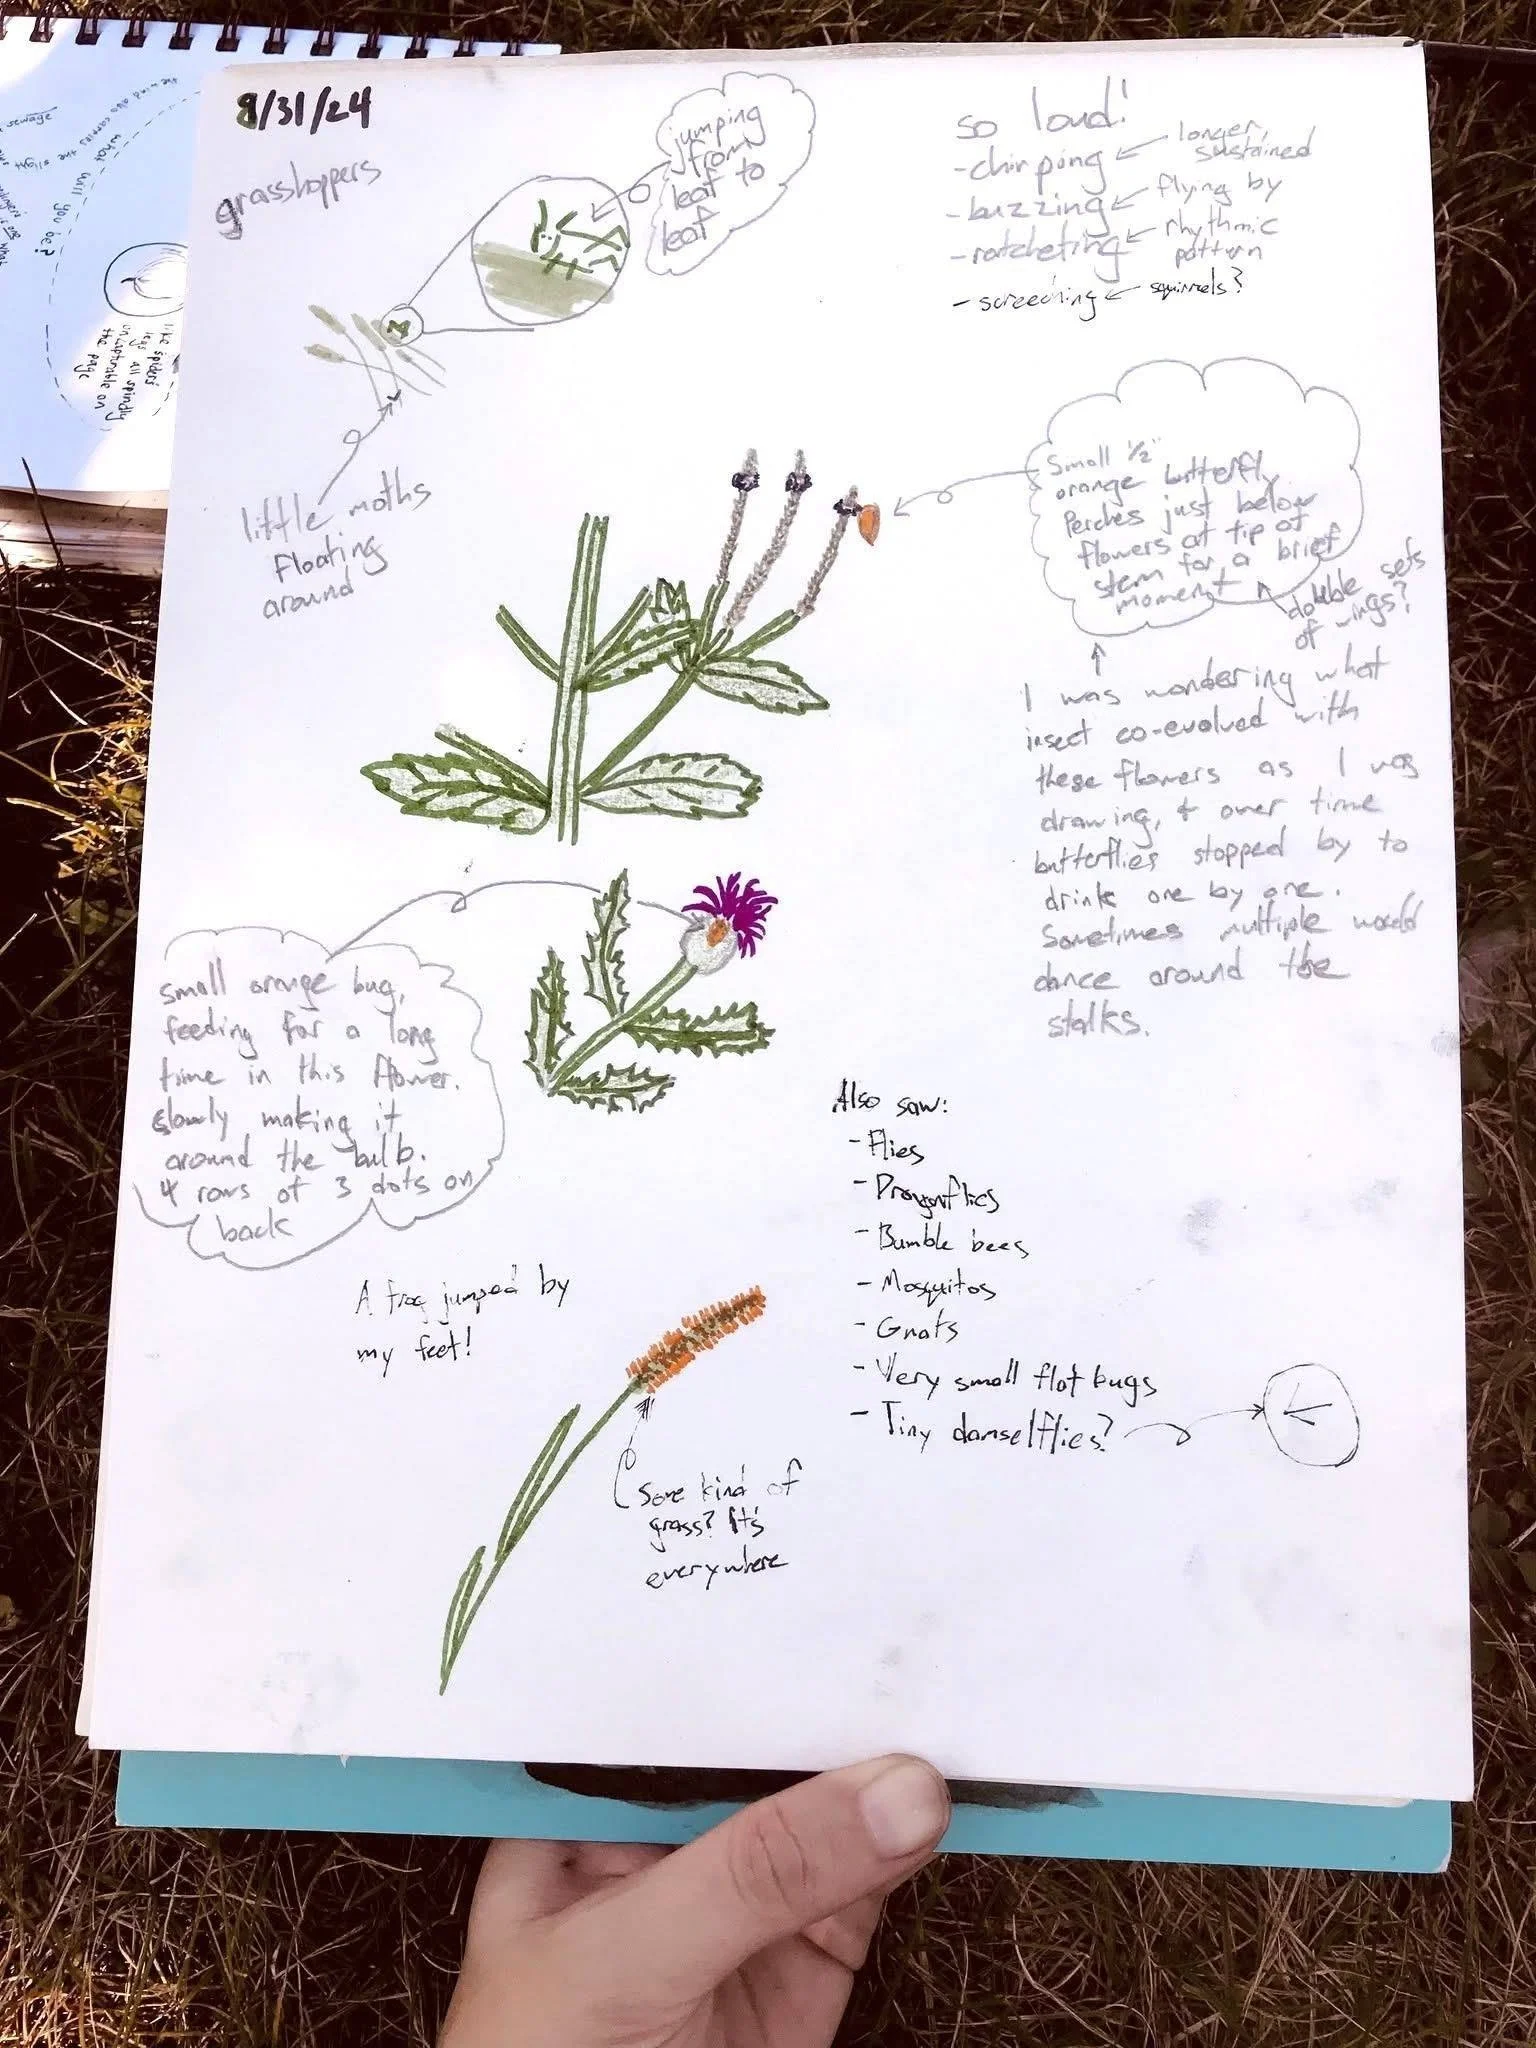 8/31/24
grasshoppers
jumping
from
leaf to
leaf
so loud!
- chirping
longer,
sustained
- buzzing
flying by
- ratcheting
rhythmic
pattern
- screeching
squirrels?
little moths
floating
around
Small 1/2"
orange butterfly.
Perches just below
flowers at tip of
stem for a brief
moment
double sets
of wings?
I was wondering what
insect co-evolved with
these flowers as I was
drawing, & over time
butterflies stopped by to
drink one by one.
Sometimes multiple would
dance around the
stalks.
small orange bug,
feeding for a long
time in this flower.
slowly making it
around the bulb.
4 rows of 3 dots on
back
Also saw:
- Flies
- Dragonflies
- Bumble bees
- Mosquitos
- Gnats
- Very small flat bugs
- Tiny damselflies?
A frog jumped by
my feet!
Some kind of
grass? It's
everywhere
sewage
the wind also carries the slight
what will you be?
like spiders'
legs all spindly
uncapturable on
the page